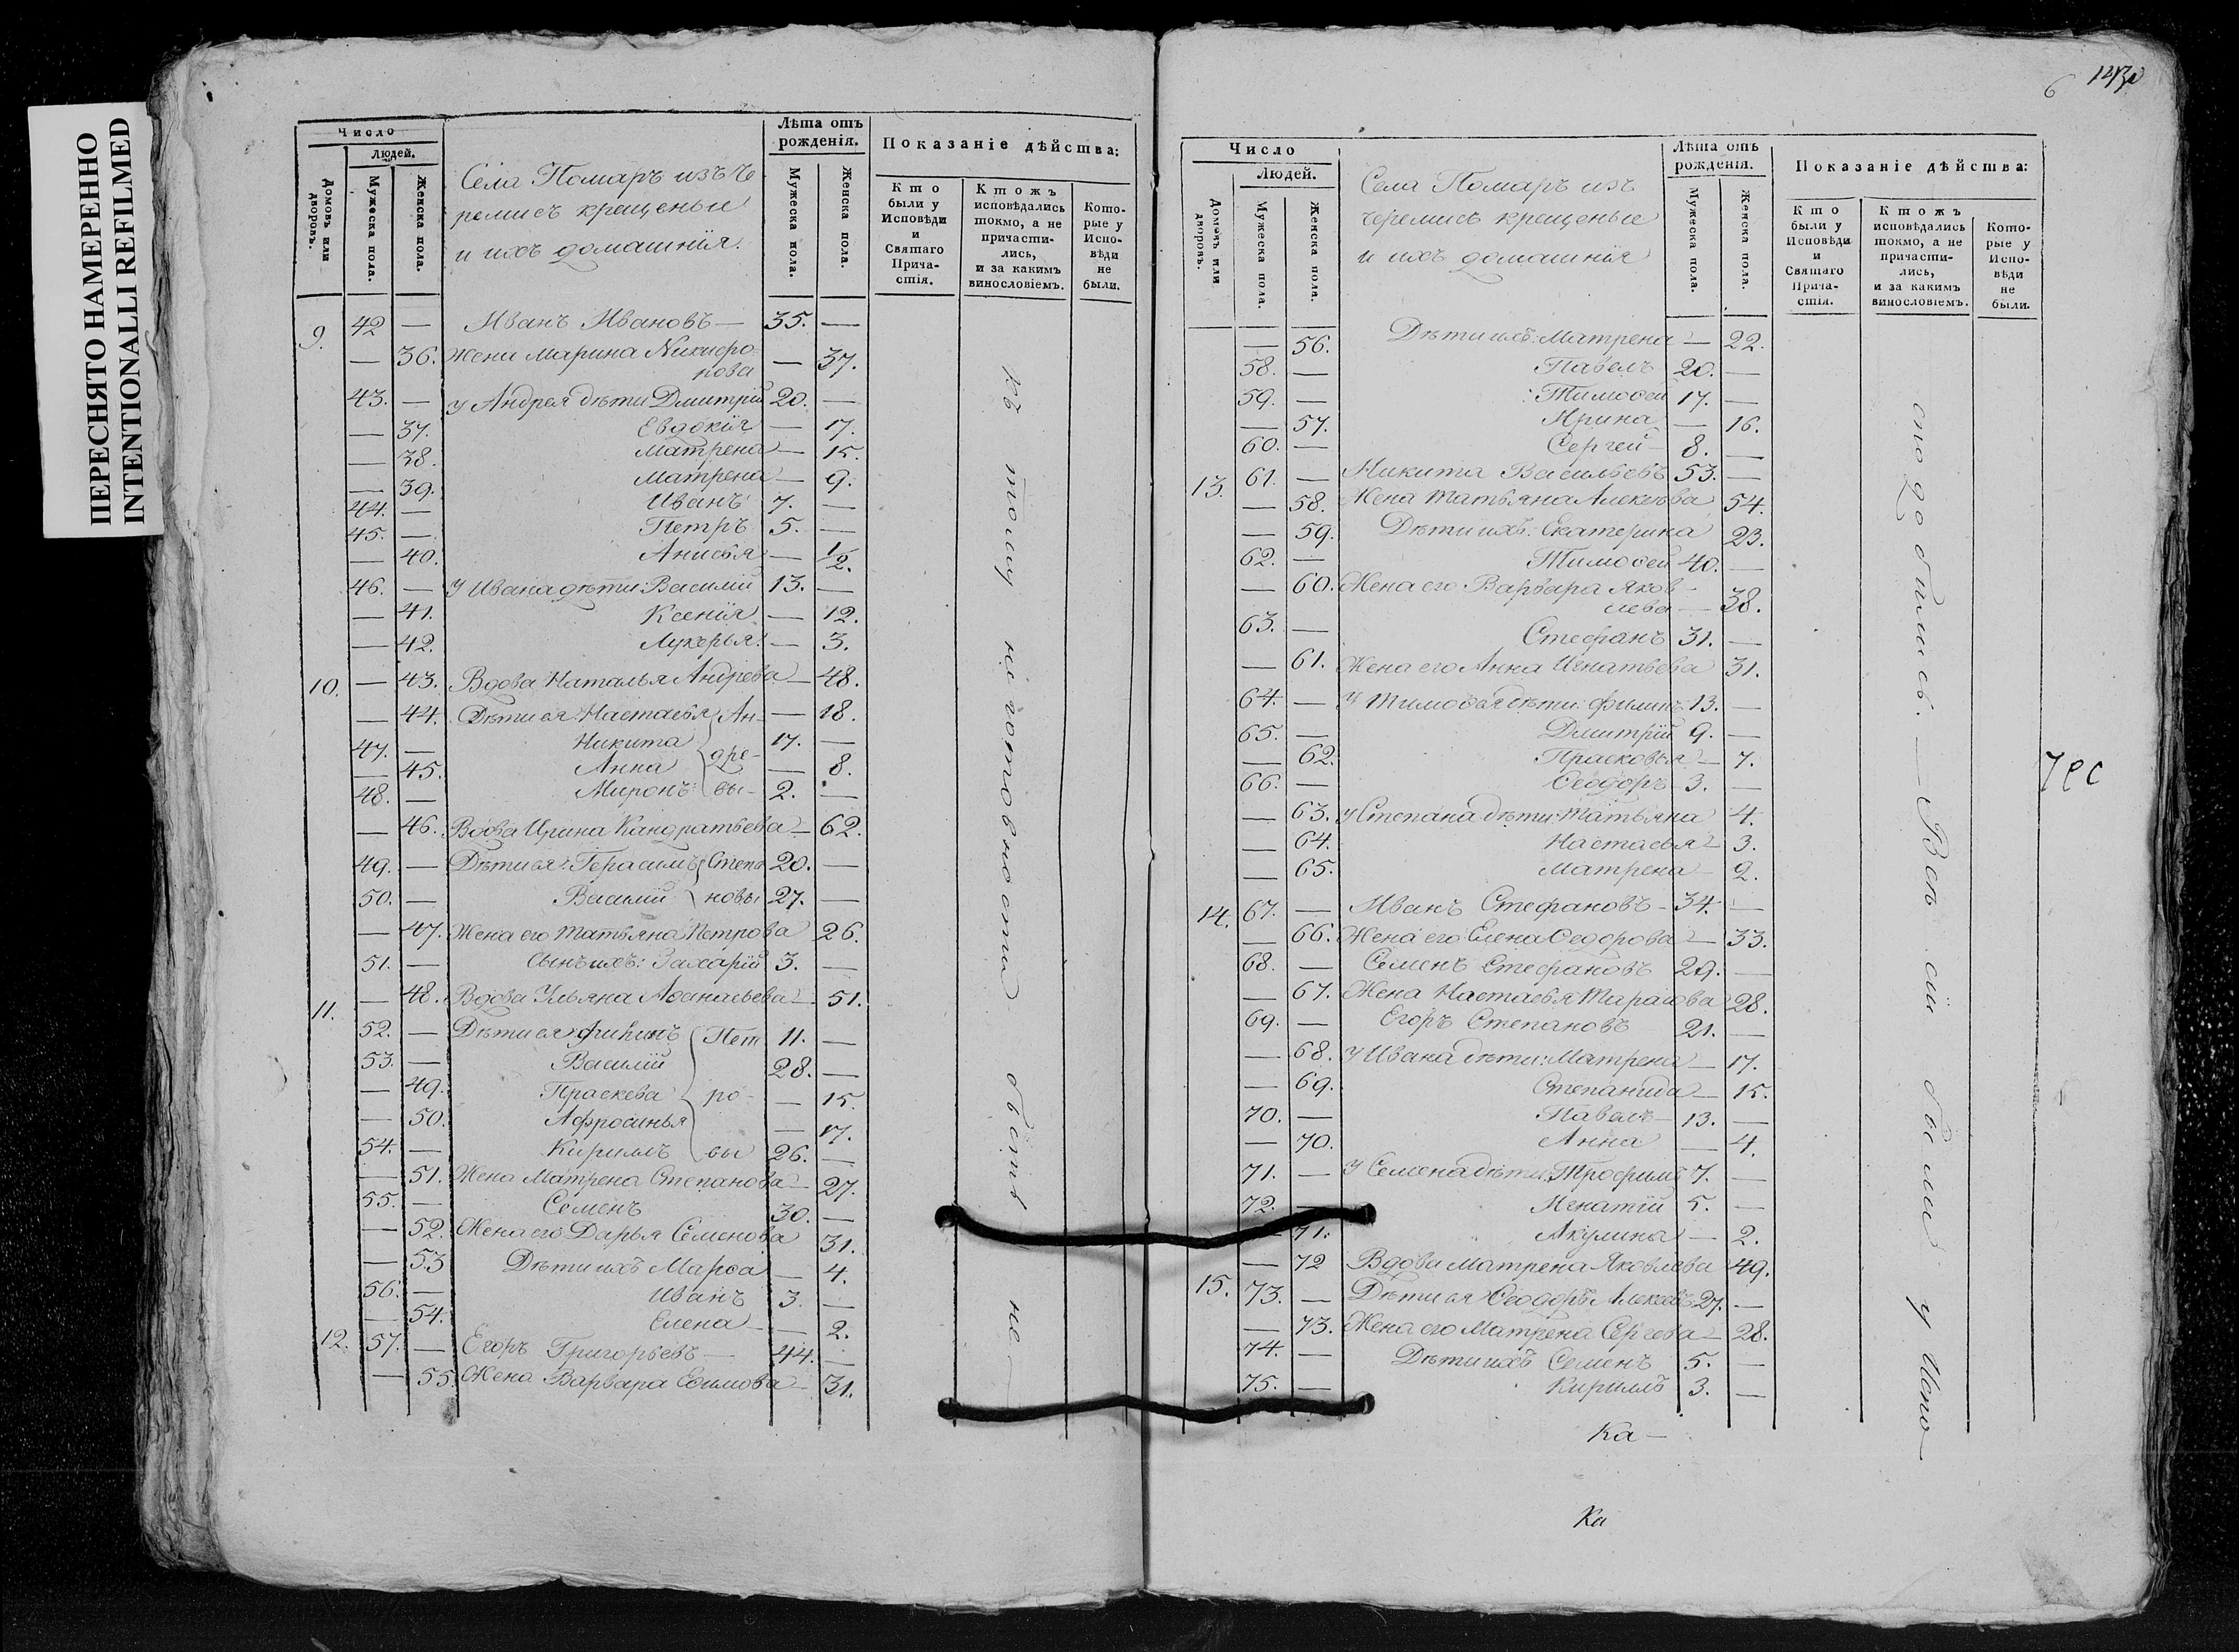 ПЕРЕСНЯТО НАМЕРЕННО
INTENTIONALLI REFILMED
Число
Людей.
Домовъ или дворовъ.
Мужеска пола.
Женска пола.
Села Помаръ изъ че
ремисъ крещеные
и ихъ домашнія.
Лѣта отъ рожденія.
Мужеска пола.
Женска пола.
Показаніе дѣйства:
Кто были у Исповѣди и Святаго Прича-стія.
Ктожъ исповѣдались токмо, а не причасти-лись, и за какимъ винословіемъ.
Кото-рые у Испо-вѣди не были.
9. 42 — Иванъ Ивановъ — 35. —
— 36. Жена Марина Никифо
рова — 37.
43. — у Андрея дѣти Дмитрій 20. —
— 37. Евдокія — 17.
— 38. Матрена — 15.
— 39. Матрена — 9.
44. — Иванъ 7. —
45. — Петръ 5. —
— 40. Анисья — 1/2.
46. — У Ивана дѣти: Василій 13. —
— 41. Ксенія — 12.
— 42. Лукерья — 3.
10. — 43. Вдова Наталья Андрева — 48.
— 44. Дѣти ея: Настасья Ан- — 18.
47. — Никита 17. —
— 45. Анна дре- — 8.
48. — Миронъ вы- 2. —
— 46. Вдова Ирина Кандратьева — 62.
49. — Дѣти ея: Герасимъ Степа 20. —
50. — Василій новы 27. —
— 47. Жена его Татьяна Петрова 26.
51. — Сынъ ихъ: Захарій 3. —
11. — 48. Вдова Ульяна Аѳанасьева — 51.
52. — Дѣти ея Филипъ Пет 11. —
53. — Василій 28. —
— 49. Праскева ро- — 15.
— 50. Афросинья — 17.
54. — Кирилъ вы 26. —
— 51. Жена Матрена Степанова — 27.
55. — Семенъ 30. —
— 52. Жена его Дарья Семенова 31.
— 53 Дѣти ихъ Марѳа — 4.
56. — Иванъ 3. —
— 54. Елена — 2.
12. 57. — Егоръ Григорьевъ — 44. —
— 55. Жена Варвара Ефимова — 31.
къ тому не готовности объятъ не-
6
Число
Людей.
Домовъ или дворовъ.
Мужеска пола.
Женска пола.
Села Помаръ изъ
черемисъ крещеные
и ихъ домашнія
Лѣта отъ рожденія.
Мужеска пола.
Женска пола.
Показаніе дѣйства:
Кто были у Исповѣди и Святаго Прича-стія.
Ктожъ исповѣдались токмо, а не причасти-лись, и за какимъ винословіемъ.
Кото-рые у Испо-вѣди не были.
— 56. Дѣти ихъ: Матрена — 22.
58. — Павелъ 20. —
59. — Тимоѳей 17. —
— 57. Ирина — 16.
60. — Сергей — 8. —
13. 61. — Никита Васильевъ 53. —
— 58. Жена Татьяна Алексѣва 54.
— 59. Дѣти ихъ: Екатерина 23.
62. — Тимоѳей 40. —
— 60. Жена его Варвара Яков-
лева — 38.
63. — Стефанъ 31. —
— 61. Жена его Анна Игнатьева 31.
64. — У Тимоѳея дѣти: Филипъ 13. —
65. — Дмитрій 9. —
— 62. Прасковья — 7.
66. — Ѳеодоръ 3. —
— 63. у Степана дѣти: Татьяна 4.
— 64. Настасья — 3.
— 65. Матрена — 2.
14. 67. — Иванъ Стефановъ — 34. —
— 66. Жена его Елена Ѳедорова — 33.
68. — Семенъ Стефановъ 29. —
— 67. Жена Настасья Тарасова 28.
69. — Егоръ Степановъ 21. —
— 68. У Ивана дѣти: Матрена — 17.
— 69. Степанида — 15.
70. — Павелъ — 13. —
— 70. Анна — 4.
71. — У Семена дѣти: Трофимъ 7. —
72. — Игнатій 5. —
— 71. Акулина — 2.
— 72 Вдова Матрена Яковлева 49.
15. 73. — Дѣти ея Ѳеодоръ Алексѣевъ 27. —
— 73. Жена его Матрена Сергева — 28.
74. — Дѣти ихъ Семенъ 5. —
75. — Кирилъ 3. —
сподобились. — Всѣ сіи были у Испо-
Ка-
Ка